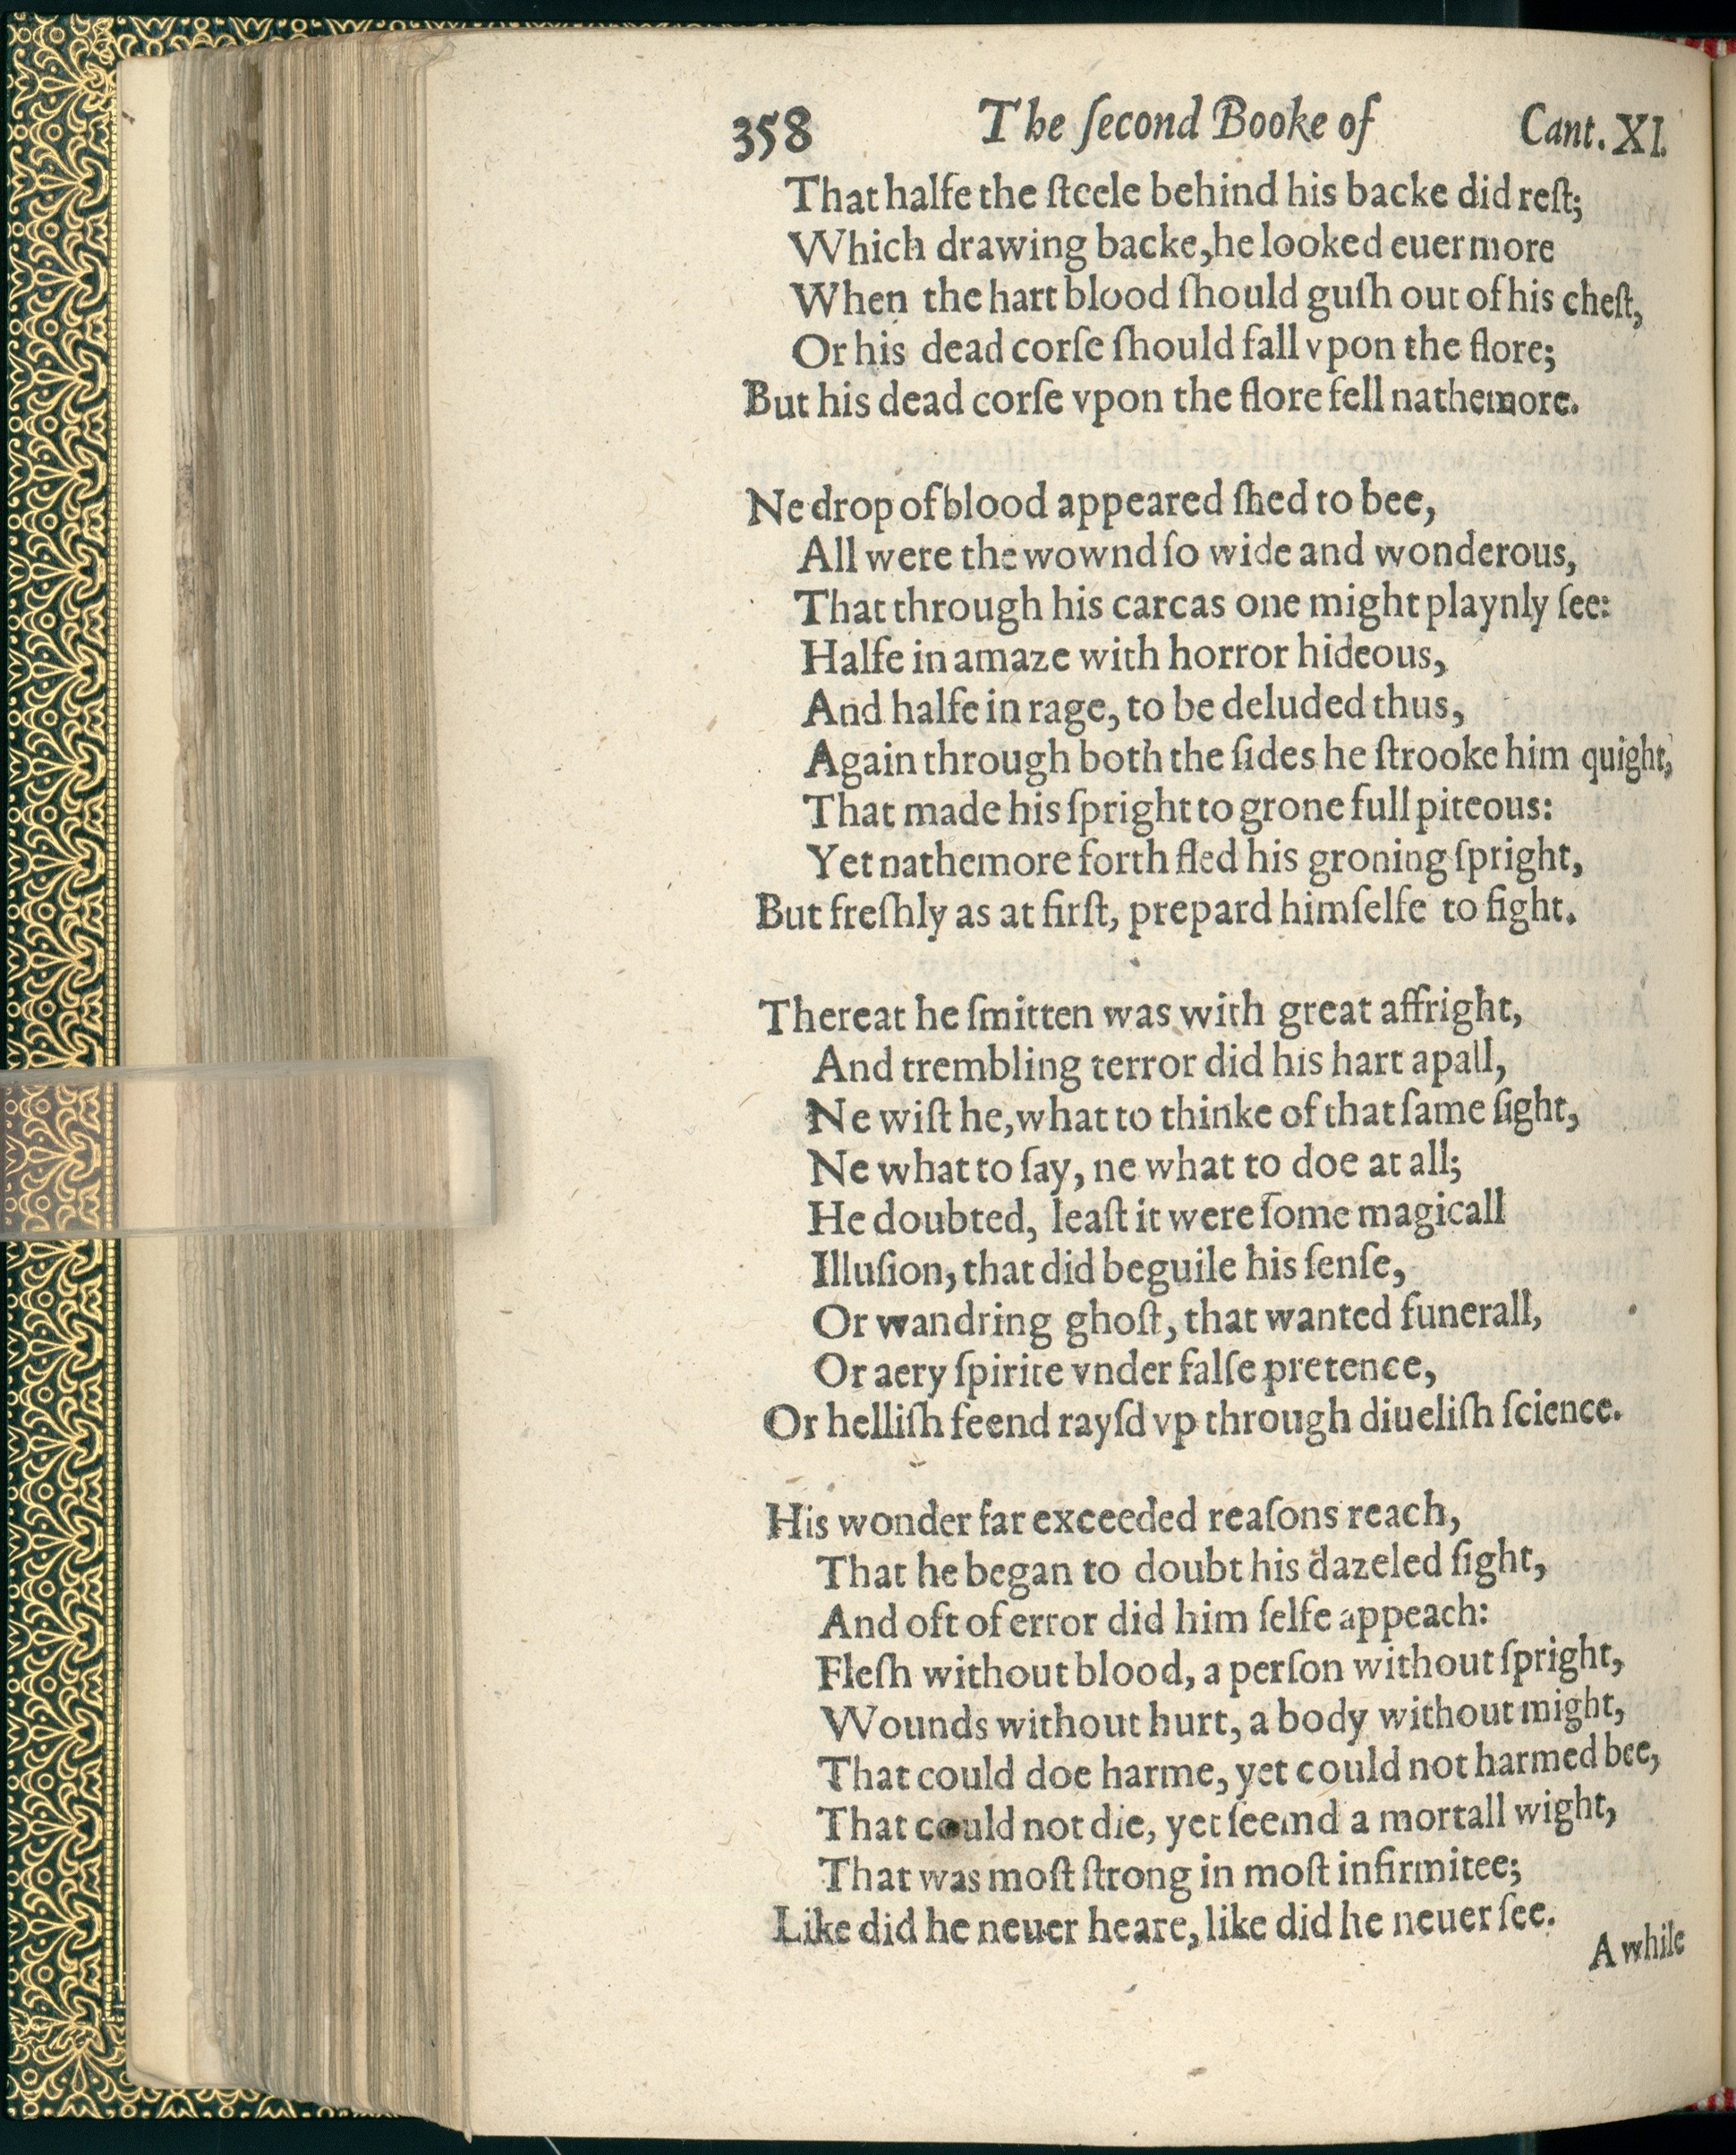 358 The ſecond Booke of Cant. XI.
That halfe the ſteele behind his backe did reſt;
Which drawing backe, he looked euermore
When the hart blood ſhould guſh out of his cheſt,
Or his dead corſe ſhould fall vpon the flore;
But his dead corſe vpon the flore fell nathemore.
Ne drop of blood appeared ſhed to bee,
All were the wownd ſo wide and wonderous,
That through his carcas one might playnly ſee:
Halfe in amaze with horror hideous,
And halfe in rage, to be deluded thus,
Again through both the ſides he ſtrooke him quight,
That made his ſpright to grone full piteous:
Yet nathemore forth fled his groning ſpright,
But freſhly as at firſt, prepard himſelfe to fight.
Thereat he ſmitten was with great affright,
And trembling terror did his hart apall,
Ne wiſt he, what to thinke of that ſame ſight,
Ne what to ſay, ne what to doe at all;
He doubted, leaſt it were ſome magicall
Illuſion, that did beguile his ſenſe,
Or wandring ghoſt, that wanted funerall,
Or aery ſpirite vnder falſe pretence,
Or helliſh feend rayſd vp through diueliſh ſcience.
His wonder far exceeded reaſons reach,
That he began to doubt his dazeled ſight,
And oft of error did him ſelfe appeach:
Fleſh without blood, a perſon without ſpright,
Wounds without hurt, a body without might,
That could doe harme, yet could not harmed bee,
That could not die, yet ſeemd a mortall wight,
That was moſt ſtrong in moſt infirmitee;
Like did he neuer heare, like did he neuer ſee.
A while